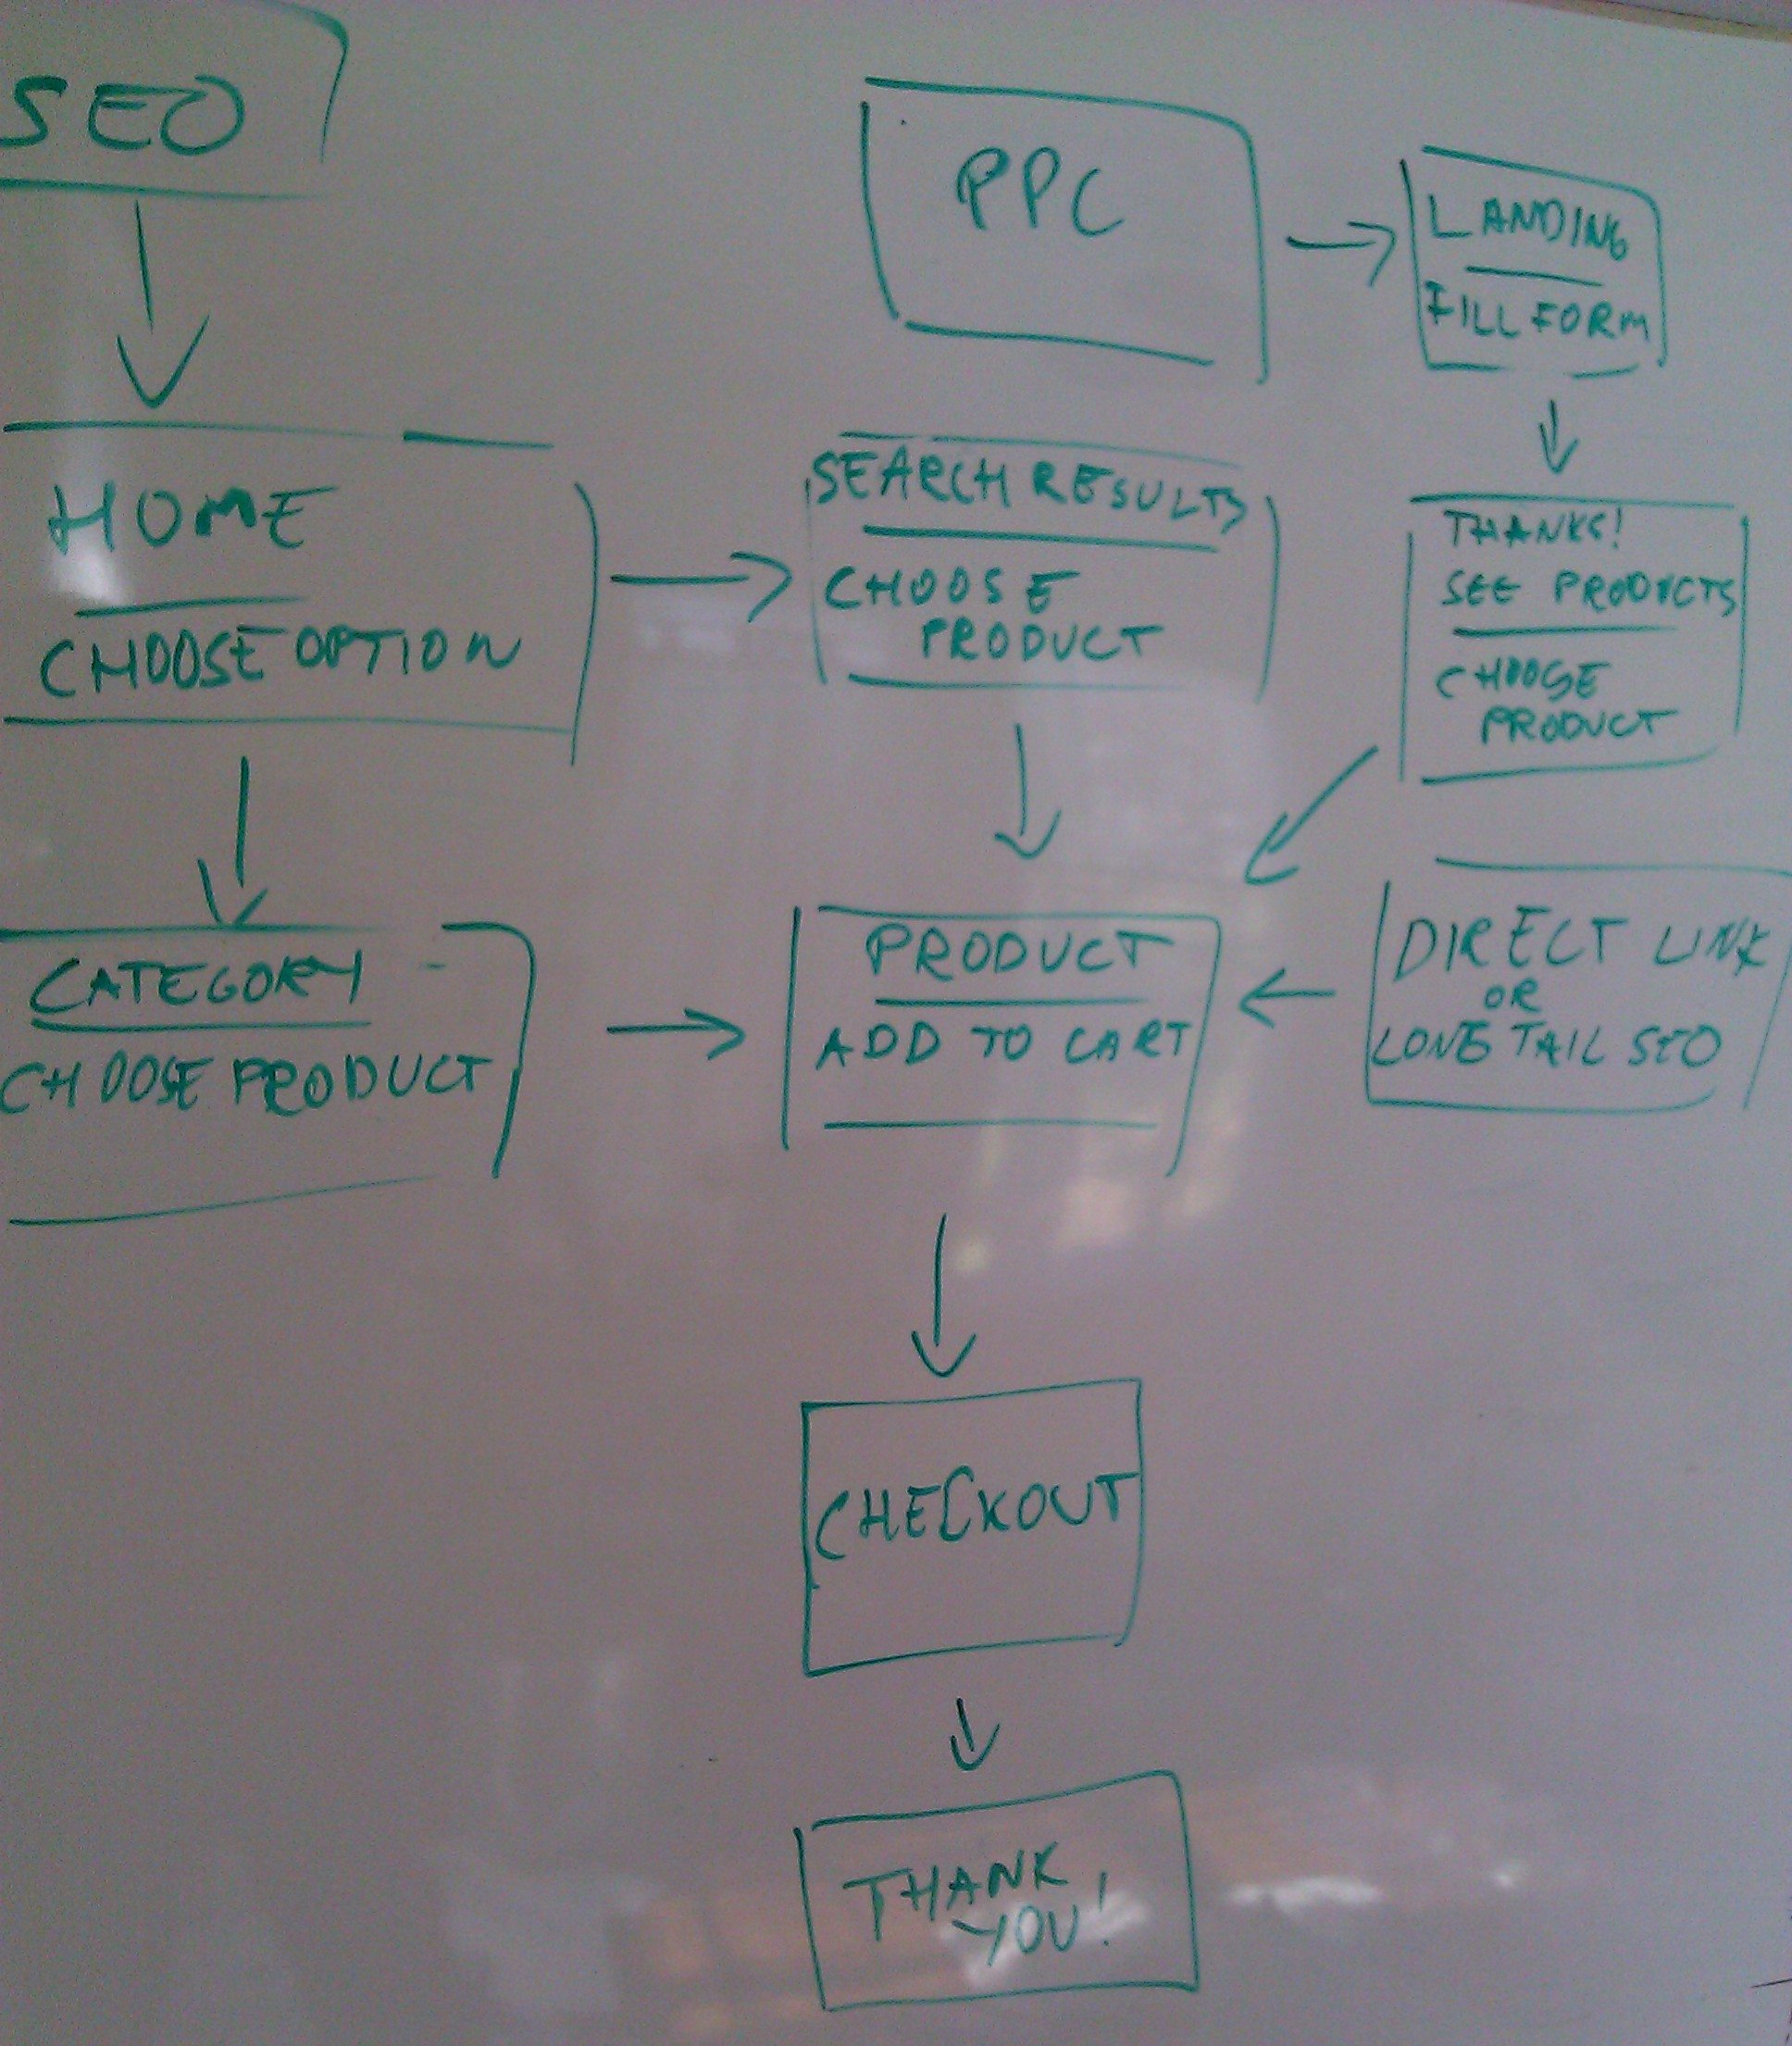 SEO
PPC
LANDING
FILL FORM
HOME
CHOOSE OPTION
SEARCH RESULTS
CHOOSE
PRODUCT
THANKS!
SEE PRODUCTS
CHOOSE
PRODUCT
CATEGORY
CHOOSE PRODUCT
PRODUCT
ADD TO CART
DIRECT LINK
OR
LONG TAIL SEO
CHECKOUT
THANK
YOU!